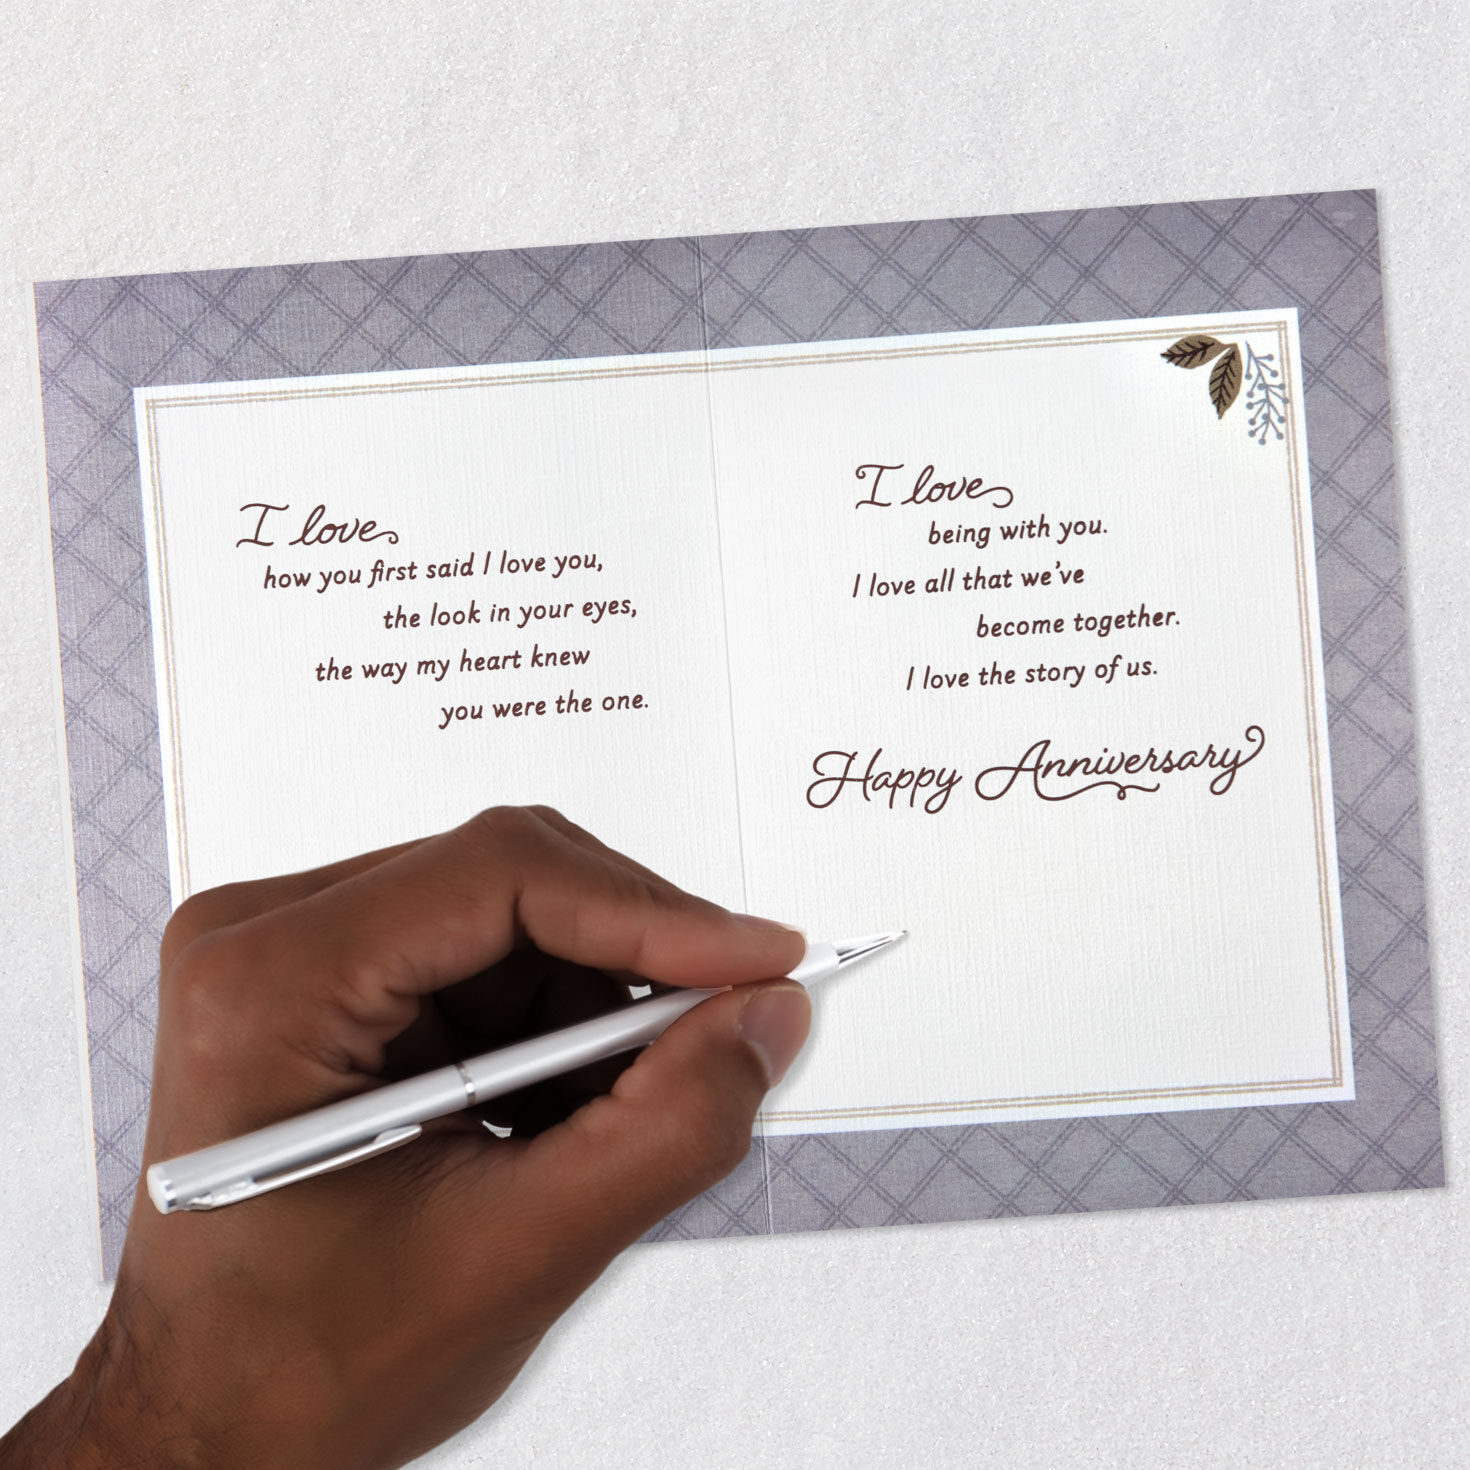 I love
how you first said I love you,
the look in your eyes,
the way my heart knew
you were the one.
I love
being with you.
I love all that we've
become together.
I love the story of us.
Happy Anniversary